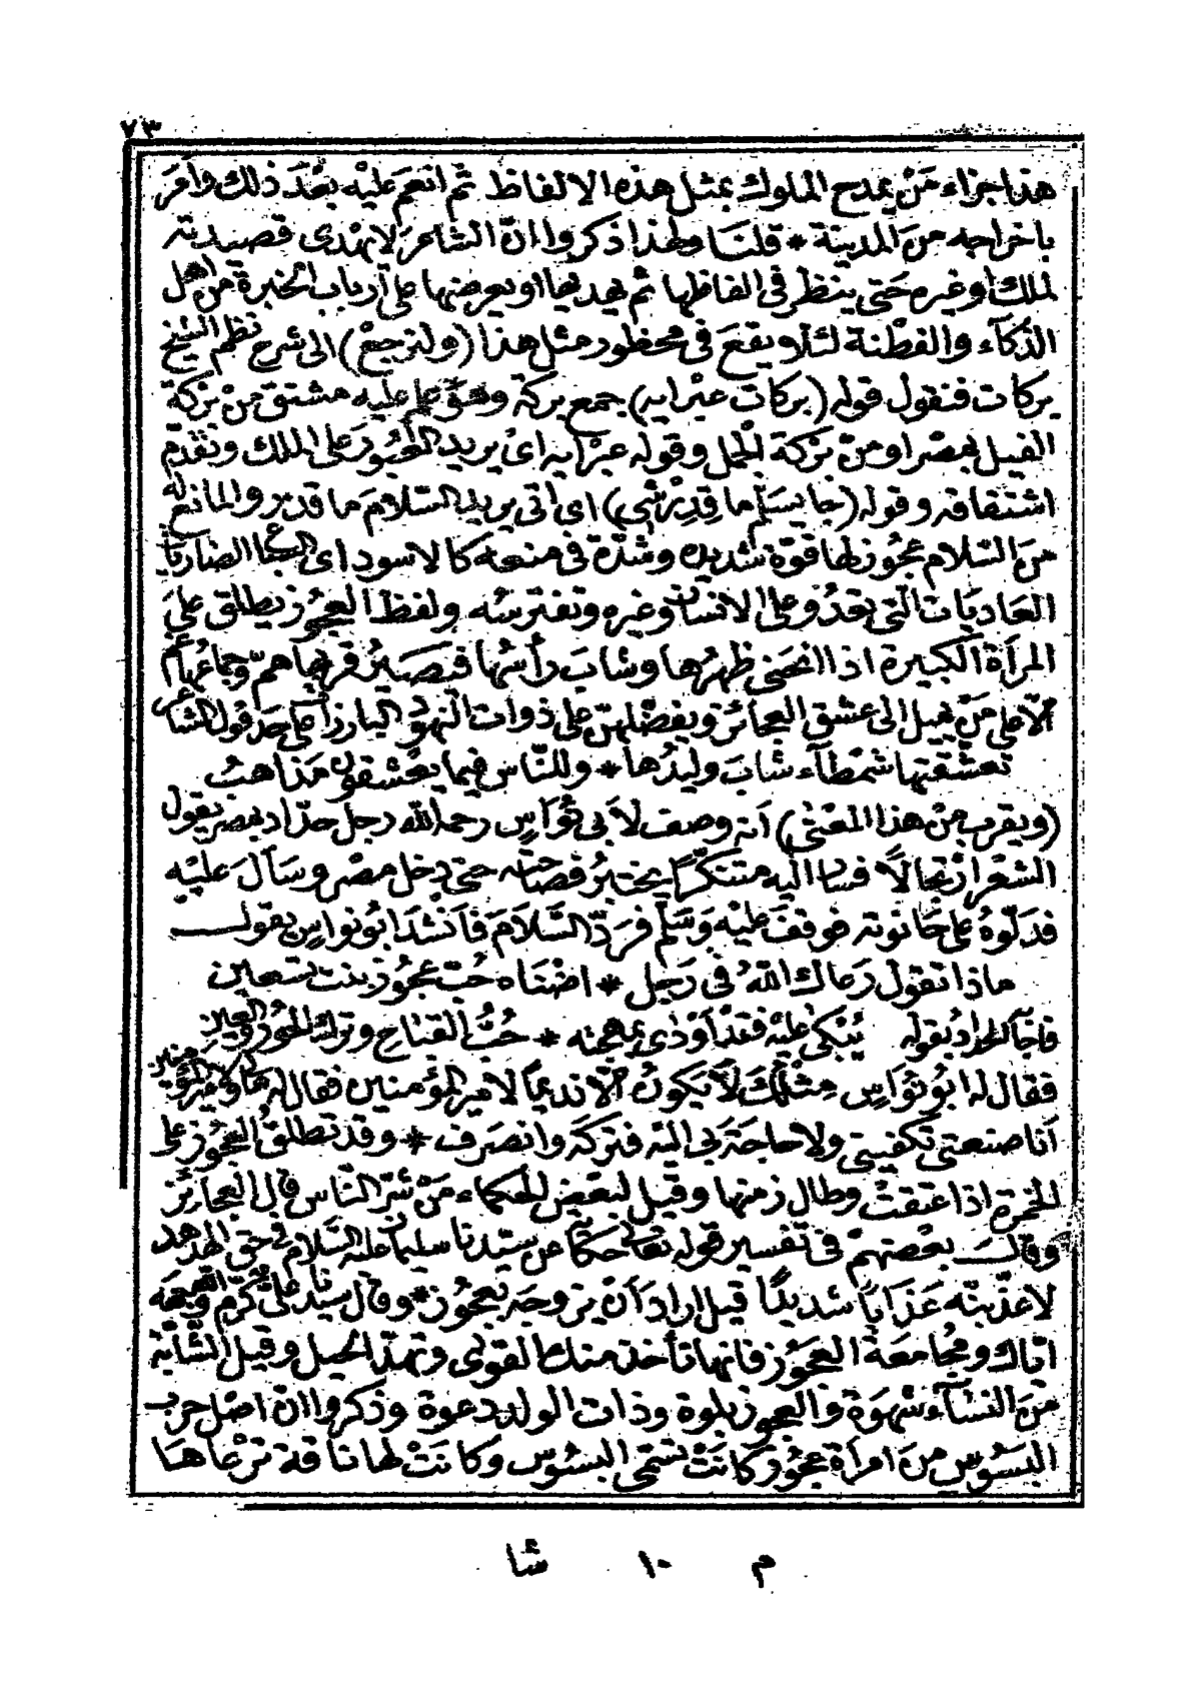 ٧٣
هذا جزاء مَنْ يمدح الملوك بمثل هذه الالفاظ ثم انعم عَليْه بعْدَ ذلك وأمَرَ
باخراجه منَ المدينة * قلنا ولهذا ذكروا انّ الشاعرَ لا يهْدى قصيدته
لملك أو غيره حَتى ينظر فى الفاظها ثم يهديها او يعرضها على آرباب الخبرة من اهل
الذكآء والفطْنة لئلا ويقعَ فى محظور مثل هذا (ولنرجعْ) الى شرح نظم الشيخ
بركات فنقول قوله (بركات عبْرايه) جمع بركة وهو علم عليه مشتق منْ بركة
الفيل بمصْر او منْ بَركة الجمل وقوله عبْرايه اىْ يريد العُبُورَ على الملك وتقدّم
اشتقاقه وقوله (جا يسَلّم ما قدِرْشي) اى اتى يريد السّلامَ ما قدر والمانع له
منَ السّلام عجُوز لها قوّة شديده وشدّة فى منعه كالاسود اى السّباع الضاريات
العَاديَات الّتى تعْدُو على الانسان وغيره وتفترسُه ولفظ العجُوز يطلق علىَ
المرأة الكبيرة اذا انحَنى ظهرُها وشابَ رأسُها فتصَيرُ قربها همّ وجماعُها غم
الاّ على مَنْ يميل الى عشق العجائز ويفضّلهنّ على ذوات النّهود البارزة على حَد قول الشاعر
تعشقتها شمْطآء شابَ وليدُها * وللنّاس فيما يعْشقون مَذاهبُ
(ويقرب منْ هذا المعْنى) أنه وصف لأبى نُوَاس رحمه الله رجل حدّاد بمصْر يقول
الشعْر ارْتجالاً فسار اليه متنكّرًا يختبرُ فصَاحته حتى دخل مصْر وسَأل عَليْه
فدَلّوهُ على حَانوته فوقفَ عليْه وَسَلّم فرَدّ السَّلاَمَ فأنشدَ ابُو نواس يقول
ماذا تقول رَعاك اللهُ فى رَجل * اضْناه حُبّ عجُوز بنت تسعين
فاجَابَه الحدادُ بقوله يُبْكى عليْه فقدْ أوْدى بمهجته * حُبُّ القبَاح وترْك الخرّد العين
فقال له ابُو نُوَاس مثْلُكَ لاَ يكونُ الاّ نديمًا لامير المؤمنين فقال له
أنا صنعتى تكفينى ولا حاجَةَ لى اليْه فتركهَ وانصَرف * وقد تطلقُ العجُوز على
الخمْرة اذا عتقتْ وطال زمنها وقيل لبَعْض الحكماء مَنْ شرّ النّاس قال العجائز
وقالَ بعْضهمْ فى تفسير قوله تعالى حكايةً عن سيّدنا سليمان عليْه السّلام فى حَق الهدْهد
لاعذّبنّه عَذابًا شديدًا قيل ارادَ أنْ يزوجَه بعجُوز * وقال سيّدنا علىّ كرم
ايّاك ومجُامعَةَ العجُوز فانهّا تأخذ منك القوى وتهدّ الحيل وقيل الشّابّة
منَ النسَآء شهْوَة والعجوز بلوة وذات الولد دعوة وذكروا انّ اصْل حرب
البسُوس منَ امرأة عجُوز كانتْ تسَمّى البسُوس وكانتْ لها ناقة ترعَاهَا
م ١٠ شا